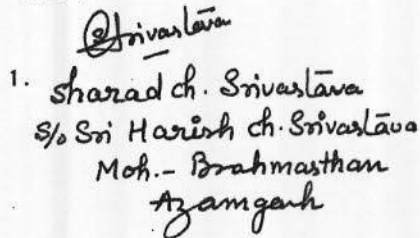 Srivastāva
1. Sharad ch. Srivastāva
S/o Sri Harish ch. Srivastāva
Moh.- Brahmasthan
Azamgarh